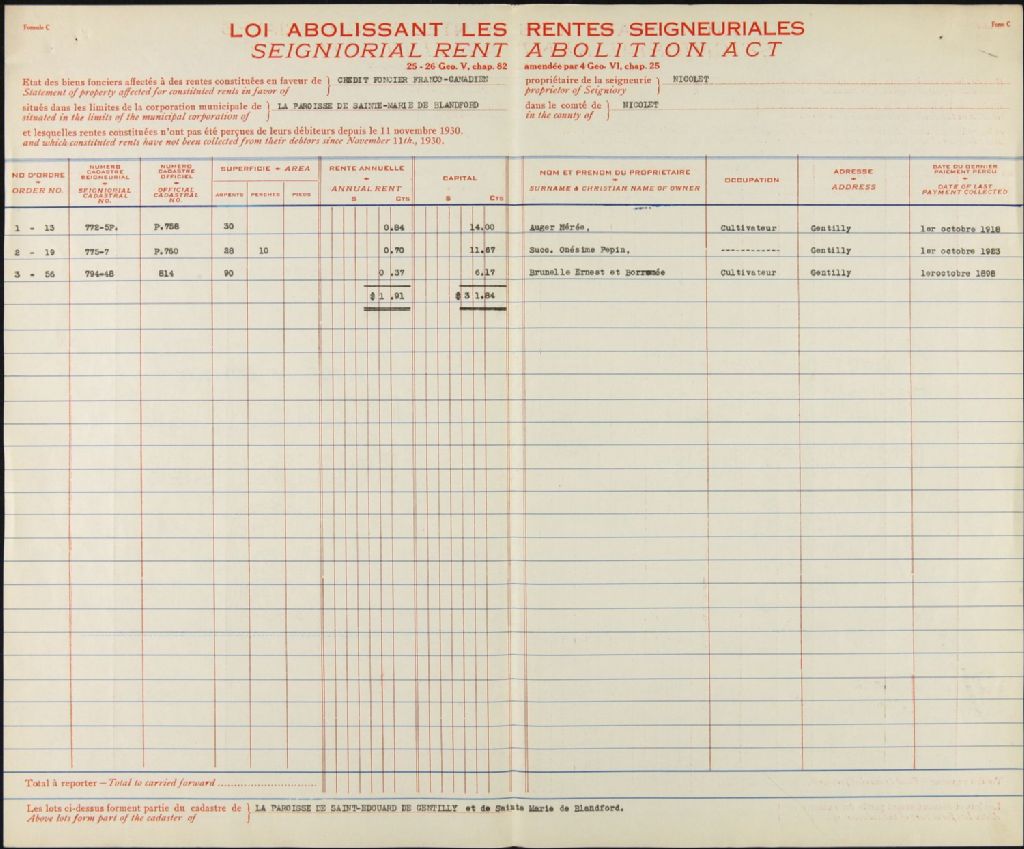 Formule C
Form C
LOI ABOLISSANT LES RENTES SEIGNEURIALES
SEIGNIORIAL RENT ABOLITION ACT
25 - 26 Geo. V, chap. 82 amendée par 4 Geo. VI, chap. 25
Etat des biens fonciers affectés à des rentes constituées en faveur de } CREDIT FONCIER FRANCO-CANADIEN propriétaire de la seigneurie } NICOLET
Statement of property affected for constituted rents in favor of proprietor of Seigniory
situés dans les limites de la corporation municipale de } LA PAROISSE DE SAINTE-MARIE DE BLANDFORD dans le comté de } NICOLET
situated in the limits of the municipal corporation of in the county of
et lesquelles rentes constituées n'ont pas été perçues de leurs débiteurs depuis le 11 novembre 1930.
and which constituted rents have not been collected from their debtors since November 11th., 1930.
NO D'ORDRE - ORDER NO.
NUMERO CADASTRE SEIGNEURIAL - SEIGNIORIAL CADASTRAL NO.
NUMERO CADASTRE OFFICIEL - OFFICIAL CADASTRAL NO.
SUPERFICIE - AREA
ARPENTS PERCHES PIEDS
RENTE ANNUELLE - ANNUAL RENT
$ CTS
CAPITAL
$ CTS
NOM ET PRENOM DU PROPRIETAIRE - SURNAME & CHRISTIAN NAME OF OWNER
OCCUPATION
ADRESSE - ADDRESS
DATE DU DERNIER PAIEMENT PERCU - DATE OF LAST PAYMENT COLLECTED
1 - 13 772-5P. P.758 30 0.84 14.00 Auger Mérée, Cultivateur Gentilly 1er octobre 1918
2 - 19 775-7 P.760 28 10 0.70 11.67 Succ. Onésime Pepin, ----------- Gentilly 1er octobre 1923
3 - 56 794-48 814 90 0 .37 6.17 Brunelle Ernest et Cultivateur Gentilly 1eroctobre 1898
$ 1 .91 $ 3 1.84
Total à reporter — Total to carried forward
Les lots ci-dessus forment partie du cadastre de } LA PAROISSE DE SAINT-EDOUARD DE GENTILLY et de Sainte Marie de Blandford.
Above lots form part of the cadaster of